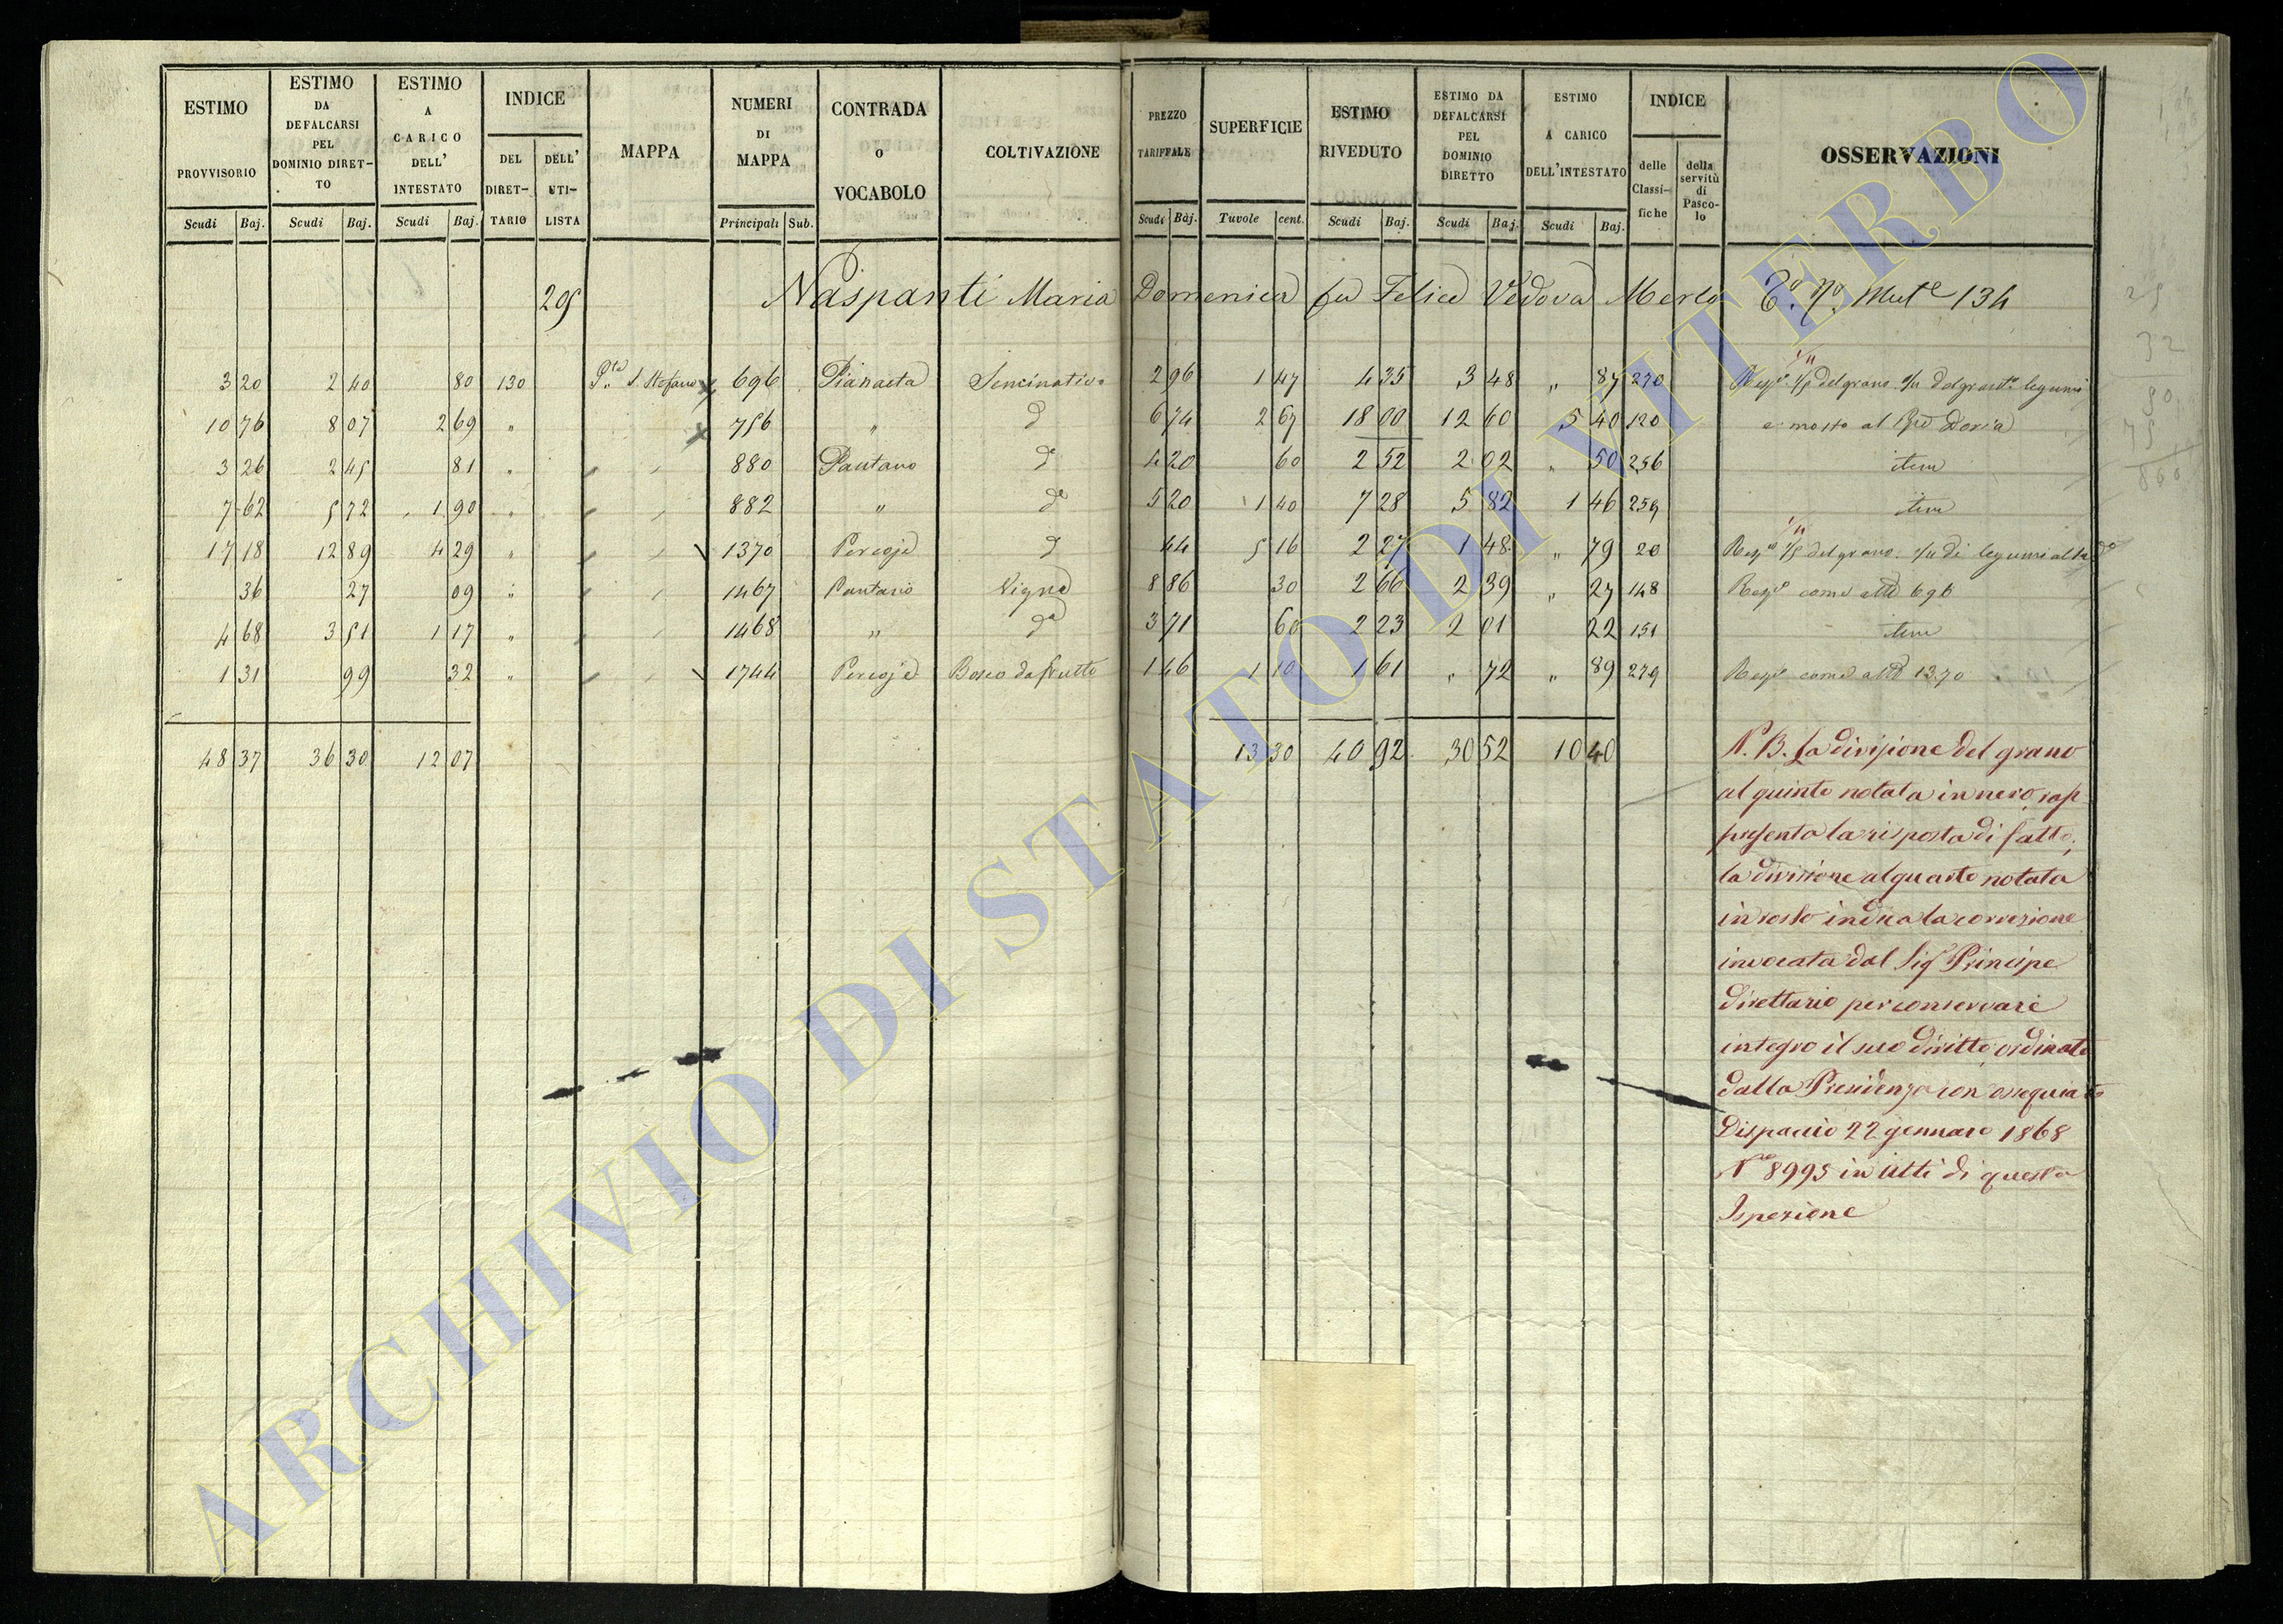 ESTIMO PROVVISORIO Scudi Baj. | ESTIMO DA DEFALCARSI PEL DOMINIO DIRETTO Scudi Baj. | ESTIMO A CARICO DELL' INTESTATO Scudi Baj. | INDICE DEL DIRETTARIO DELL' UTILISTA | MAPPA | NUMERI DI MAPPA Principali Sub. | CONTRADA O VOCABOLO | COLTIVAZIONE | PREZZO TARIFFALE Scudi Baj. | SUPERFICIE Tavole cent. | ESTIMO RIVEDUTO Scudi Baj. | ESTIMO DA DEFALCARSI PEL DOMINIO DIRETTO Scudi Baj. | ESTIMO A CARICO DELL'INTESTATO Scudi Baj. | INDICE delle Classifiche della servitù di Pascolo | OSSERVAZIONI
205 Naspanti Maria Domenica fu Felice Vedova Merlo 134
3 20 | 2 40 | 80 | 130 | S. Stefano | 696 | Pianaeta | Seminativo | 2 96 | 1 47 | 4 35 | 3 48 | " 87 | 270 | 1/5 del grano
10 76 | 8 07 | 2 69 | " | 756 | " | d | 6 74 | 2 67 | 18 00 | 12 60 | 5 40 | 120 | e mosto al Doria
3 26 | 2 45 | 81 | " | 880 | Pantano | d | 4 20 | 60 | 2 52 | 2 02 | " 50 | 256 | item
7 62 | 5 72 | 1 90 | " | 882 | " | d | 5 20 | 1 40 | 7 28 | 5 82 | 1 46 | 259 | item
17 18 | 12 89 | 4 29 | " | 1370 | Pereoje | d | 44 | 5 16 | 2 27 | 1 48 | " 79 | 20 | 1/5 del grano 1/4 di legumi
36 | 27 | 09 | " | 1467 | Pantano | Vigna | 8 86 | 30 | 2 66 | 2 39 | " 27 | 148 | come 696
4 68 | 3 51 | 1 17 | " | 1468 | " | d | 3 71 | 60 | 2 23 | 2 01 | 22 | 151 | item
1 31 | 99 | 32 | " | 1744 | Pereoje | Bosco da frutto | 1 46 | 1 10 | 1 61 | " 72 | " 89 | 279 | come 1370
48 37 | 36 30 | 12 07 | 13 30 | 40 92 | 30 52 | 10 40
N.B. La divisione del grano
al quinto notata in nero rap
presenta la risposta di fatto,
la divisione al quarto notata
in rosso indica la correzione
invocata dal Sig Principe
direttario per conservare
integro il suo diritto, ordinata
dalla Presidenza con ossequiato
Dispaccio 22 gennaro 1868
N 8995 in atti di questa
Ispezione
ARCHIVIO DI STATO DI VITERBO